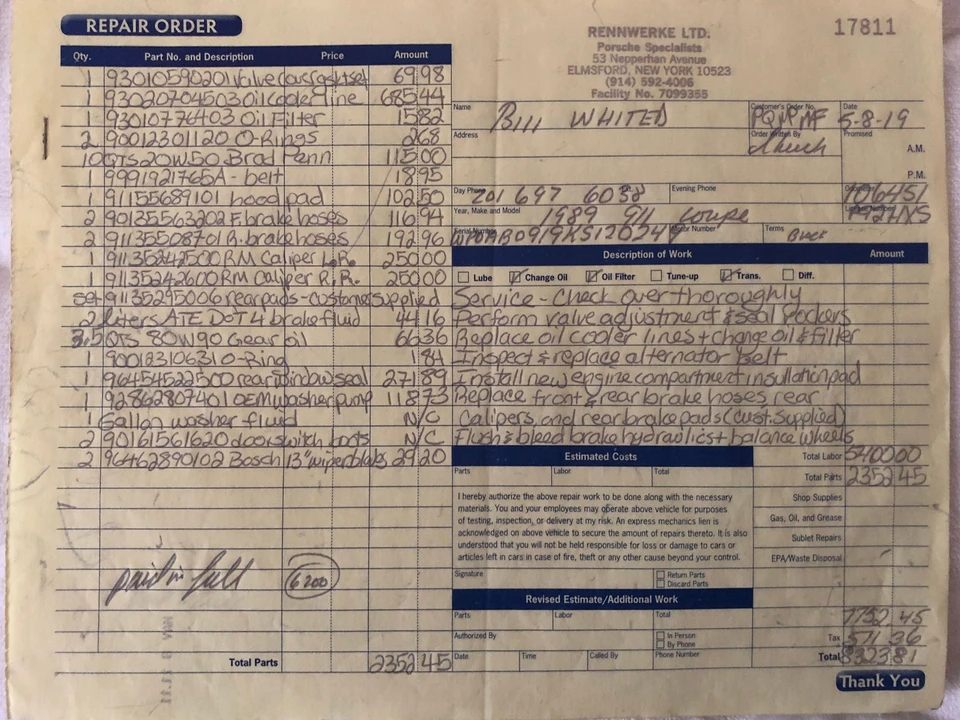 REPAIR ORDER
17811
RENNWERKE LTD.
Porsche Specialists
53 Nepperhan Avenue
ELMSFORD, NEW YORK 10523
(914) 592-4006
Facility No. 7099355
Qty. Part No. and Description Price Amount
1 93010590201 Valve covrgsktset 69 98
1 93020704503 Oil cooler line 685 44
1 93010776403 Oil Filter 15 82
2 90012301120 O-Rings 2 68
10 QTS 20W50 Brad Penn 115 00
1 9991921765A - belt 18 95
1 91155689101 hood pad 102 50
2 90135563202 F. brake hoses 116 94
2 91135508701 R. brake hoses 192 96
1 91135242500 RM Caliper L.R. 250 00
1 91135242600 RM Caliper R.R. 250 00
set 91135295006 rear pads - customer supplied
2 liters ATE DOT 4 brake fluid 44 16
3.5 QTS 80W90 Gear oil 66 36
1 90012310631 O-Ring 1 84
1 96454522500 rear window seal 271 89
1 92862807401 OEM washer pump 118 73
1 Gallon washer fluid N/C
2 90161561620 door switch boots N/C
2 96462890102 Bosch 13" wiper blades 29 20
paid in full 6200
Total Parts 2352 45
Name Bill WHITED
Customer's Order No.
Date 5-8-19
Address
Order Written By
Promised
A.M.
P.M.
Day Phone 201 697 6038
Evening Phone
Odometer 106451
Year, Make and Model 1989 911 coupe
Serial Number
Motor Number
Terms
Description of Work Amount
Lube Change Oil Oil Filter Tune-up Trans. Diff.
Service - Check over thoroughly
Perform valve adjustment & seal rockers
Replace oil cooler lines + change oil & filter
Inspect & replace alternator belt
Install new engine compartment insullation pad
Replace front & rear brake hoses, rear
Calipers, and rear brake pads (cust. supplied)
Flush & bleed brake hydraulics + balance wheels
Estimated Costs
Parts Labor Total
Total Labor 5400 00
Total Parts 2352 45
I hereby authorize the above repair work to be done along with the necessary
materials. You and your employees may operate above vehicle for purposes
of testing, inspection, or delivery at my risk. An express mechanics lien is
acknowledged on above vehicle to secure the amount of repairs thereto. It is also
understood that you will not be held responsible for loss or damage to cars or
articles left in cars in case of fire, theft or any other cause beyond your control.
Shop Supplies
Gas, Oil, and Grease
Sublet Repairs
EPA/Waste Disposal
Signature
Return Parts
Discard Parts
Revised Estimate/Additional Work
Parts Labor Total
7752 45
Authorized By
In Person
By Phone
Tax 571 36
Date Time Called By Phone Number
Total 8323 81
Thank You